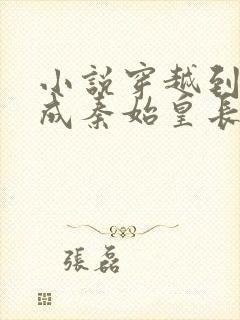 小說穿越到
成秦始皇長
張磊